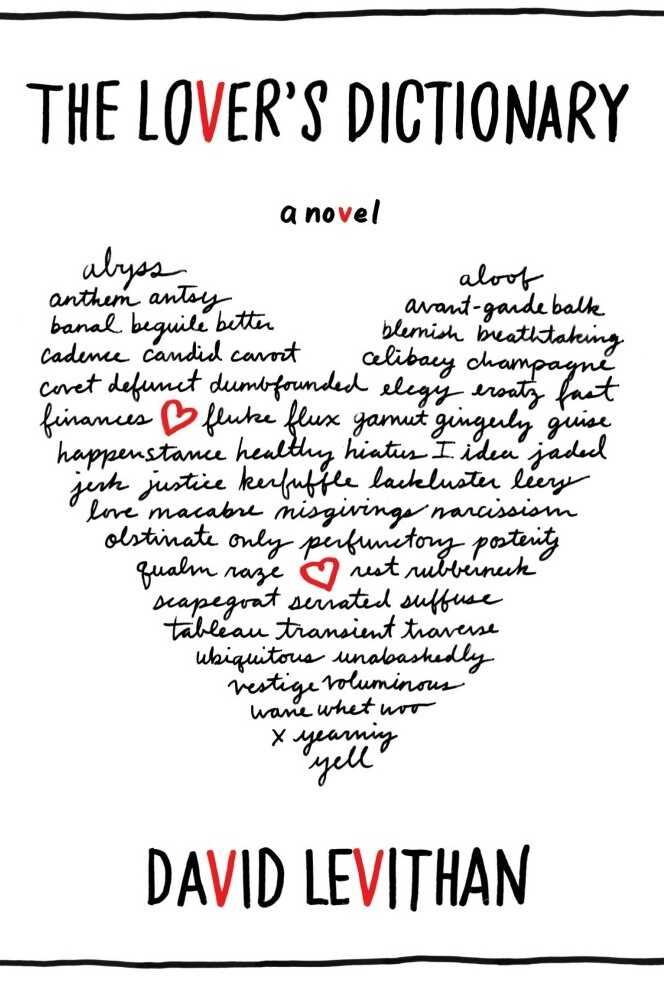 THE LOVER'S DICTIONARY
a novel
abyss aloof
anthem antsy avant-garde balk
banal beguile better blemish breathtaking
cadence candid cavort celibacy champagne
covet defunct dumbfounded elegy ersatz fast
finances fluke flux gamut gingerly guise
happenstance healthy hiatus I idea jaded
jerk justice kerfuffle lackluster leery
love macabre misgivings narcissism
obstinate only perfunctory posterity
qualm raze rest rubberneck
scapegoat serrated suffuse
tableau transient traverse
ubiquitous unabashedly
vestige voluminous
wane whet woo
x yearning
yell
DAVID LEVITHAN